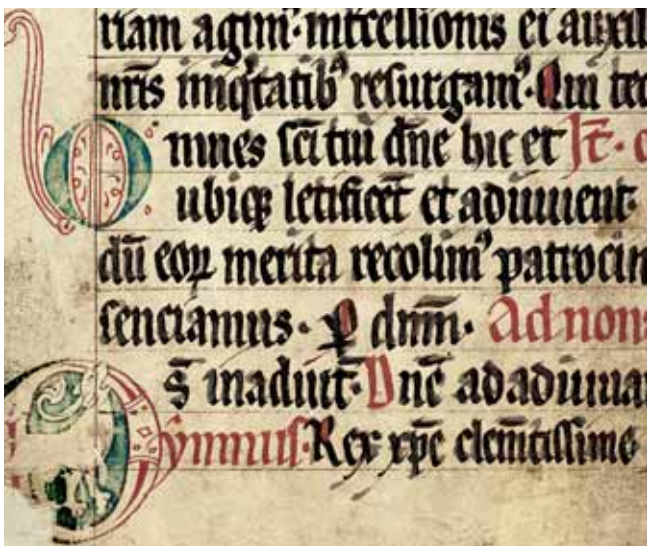 riam agim⁹. int̄cessionis ei auxil
nr̄is iniq̄tatib⁹ resurgam⁹. Qui tec
Omnes sc̄i tui dn̄e hic et It̄. o
ubiq̨ letificēt et adiuuent
dū eoꝝ merita recolim⁹ patrocin
senciamus. P dn̄m. Ad nona
D̄s in adiut̄. Dn̄e ad adiuuan
ymnus. Rex xp̄e clem̄tissime